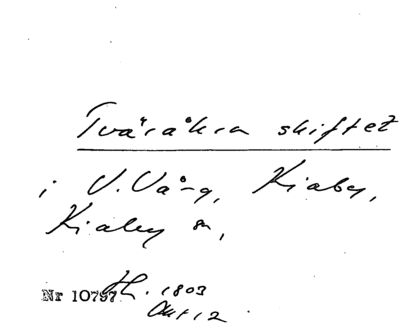 Tvåråkra skiftet
i V.Vång, Kiaby,
Kiaby sn,
Nr 10797 Hl. 1803
Akt 12